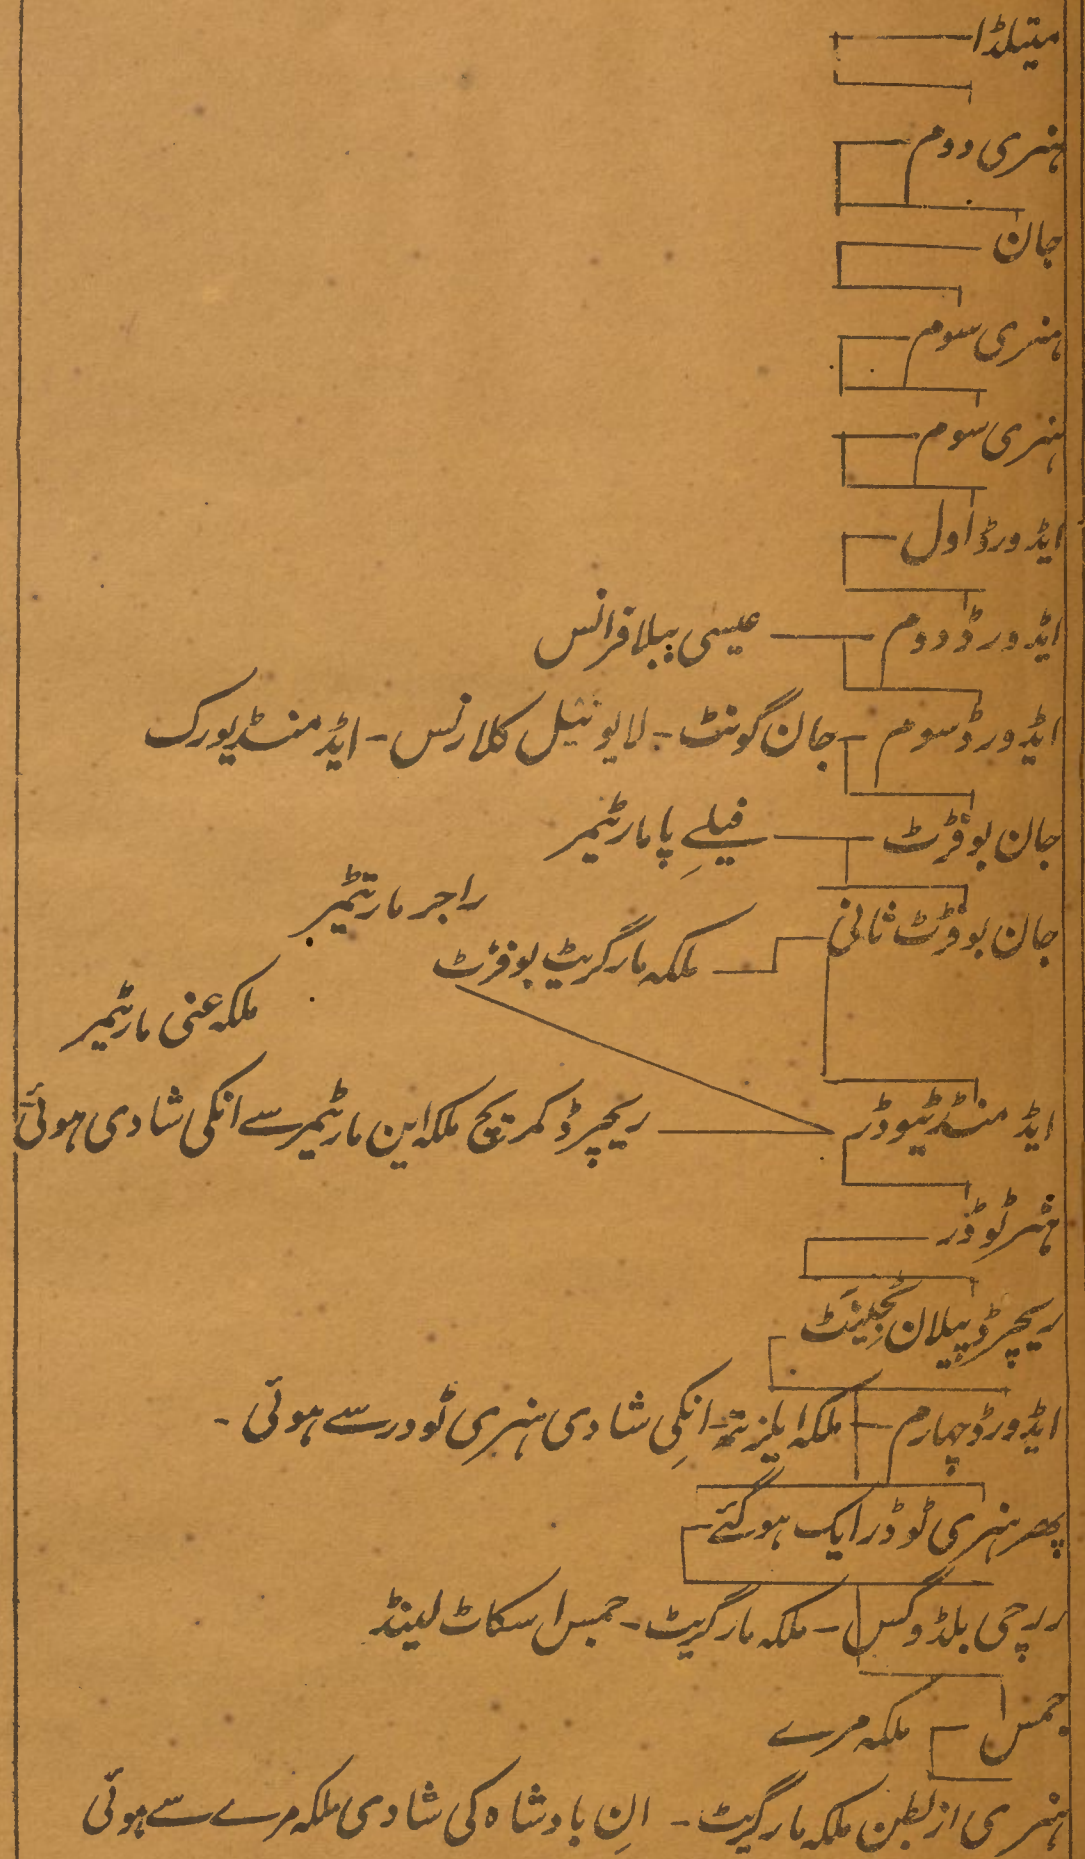 متیلڈا
ہنری دوم
جان
ہنری سوم
ہنری سوم
ایڈورڈ اول
ایڈورڈ دوم — عیسی بیلا فرانس
ایڈورڈ سوم - جان گونٹ - لایونیل کلارنس - ایڈمنڈ یورک
جان بوفرٹ — فیلےپا مارٹیمر
راجر مارٹیمر
جان بوفرٹ ثانی — ملکہ مارگریٹ بوفرٹ
ملکہ عنی مارٹیمر
ایڈمنڈ ٹیوڈر — ریچرڈ کمرج ملکہ این مارٹیمر سے انکی شادی ہوئی
ٹوڈر
ریچرڈ پلان ٹجینٹ
ایڈورڈ چہارم - ملکہ ایلزبتھ - انکی شادی ہنری ٹودر سے ہوئی -
پھر ہنری ٹوڈر ایک ہو گئے -
- ملکہ مارگریٹ - جمس اسکاٹ لینڈ
جمس - ملکہ مرے
ہنری از بطن ملکہ مارگریٹ - ان بادشاہ کی شادی ملکہ مرے سے ہوئی